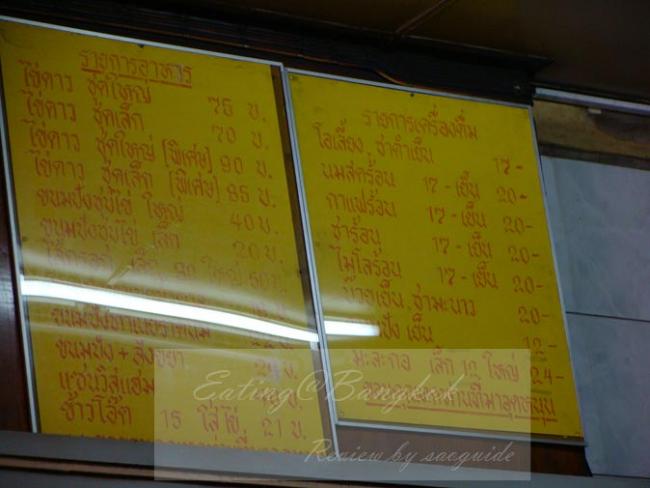 รายการอาหาร
ไข่ดาว ชุดใหญ่ 75 บ.
ไข่ดาว ชุดเล็ก 70 บ.
ไข่ดาว ชุดใหญ่ [พิเศษ] 90 บ.
ไข่ดาว ชุดเล็ก [พิเศษ] 85 บ.
ขนมปังชุบไข่ ใหญ่ 40 บ.
ขนมปังชุบไข่ เล็ก 20 บ.
เล็ก ใหญ่
ขนมปัง
ขนมปัง + สังขยา
แซนวิสแฮม บ.
ข้าวโอ๊ต 15 ใส่ไข่ 21 บ.
รายการเครื่องดื่ม
โอเลี้ยง, ชาดำเย็น 17-
นมสดร้อน 17 - เย็น 20-
กาแฟร้อน 17 - เย็น 20-
ชาร้อน 17 - เย็น 20-
ไมโลร้อน 17 - เย็น 20-
เย็น, ชามะนาว 20-
เย็น 12-
มะละกอ เล็ก 12 ใหญ่ 24-
ขอบคุณทุกท่านที่มาอุดหนุน
Eating@Bangkok
Review by sacguide